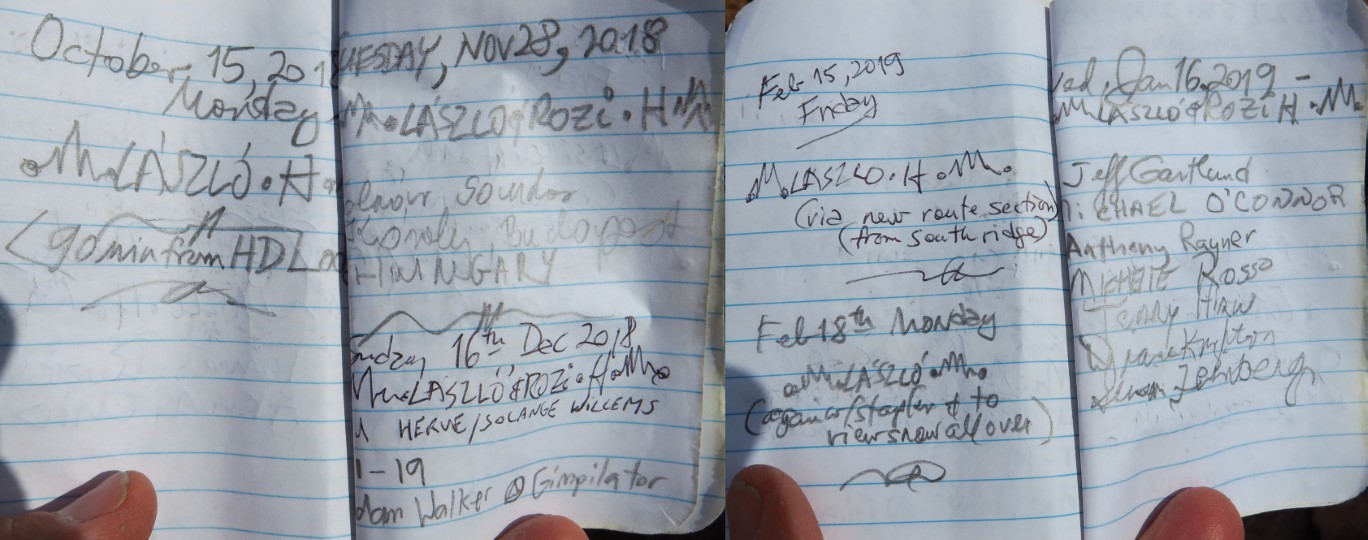 October, 15, 201
Monday
M. LÁSZLÓ • H •
(90 min from HDL
UESDAY, NOV 28, 2018
M. • LÁSZLÓ & ROZI • H M
Sándor
Budapest
HUNGARY
16th Dec 2018
M. LÁSZLÓ & ROZI • H • M.
HERVE/SOLANGE WILLEMS
1-19
dam Walker @ Gimpilator
Feb 15, 2019
Friday
M. LÁSZLÓ • H • M.
(via new route section)
(from south ridge)
Feb 18th Monday
M. LÁSZLÓ • M.
(again w/stapler & to
view snow all over)
ed, Jan 16, 2019 -
M LÁSZLÓ & ROZI H • M.
Jeff Gartland
MiCHAEL O'CONNOR
Anthony Rayner
MICHELE ROSSO